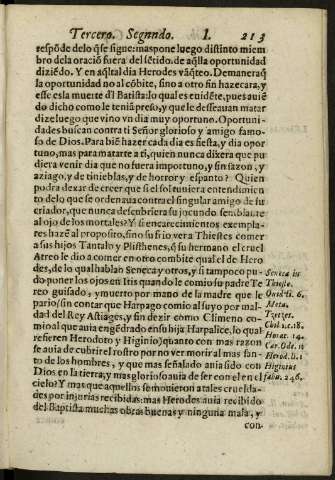 Tercero. Segundo. I. 213
respõde delo q̃ se sigue: mas pone luego distinto miem
bro dela oraciõ fuera del sẽtido. de aq̃lla oportunidad
diziẽdo. Y en aq̃l tal dia Herodes
la oportunidad no al cõbite, sino a otro fin hazer cara, y
esse es la muerte đl Batista: lo qual es euidẽte, pues auiẽ
do dicho como le teniã preso, y que le desseauan matar
dize luego que vino vn dia muy oportuno. Oportuni-
dades buscan contra ti Señor glorioso y amigo famo-
so de Dios. Para biẽ hazer cada dia es fiesta, y dia opor
tuno, mas para matarte a ti, quien nunca dixera que pu
diera venir dia que no fuera importuno, y sin sazon, y
aziago, y de tinieblas, y de horror y espanto? Quien
podra dexar de creer que si el sol tuuiera entendimien
to delo que se ordenaua contra el singular amigo de su
criador, que nunca descubriera su jocundo semblante
al ojo delos mortales? Y si encarecimientos exempla-
res hazẽ al proposito, sino sufrio vera Thiestes comer
a sus hijos Tantalo y Plisthenes, q̃ su hermano el cruel
Atreo le dio a comer en otro combite qual el de Hero
des, de lo qual hablan Seneca y otros, y si tampoco pu-
do poner los ojos en Itis quando le comio su padre Te
reo guisado, y muerto por mano de la madre que le
pario, sin contar que Harpago comio al suyo por mal-
dad del Rey Astiages, y sin dezir como Climeno co-
mio al que auia engẽdrado en su hija Harpalice, lo qual
refieren Herodoto y Higinio, quanto con mas razon
se auia de cubrir el rostro por no ver morir al mas san-
to de los hombres, y que mas señalado auia sido con
Dios en la tierra, y mas glorioso auia de ser con el en el
cielo? Y mas que aquellos se mouieron a tales crueldа-
des por injurias recibidas: mas Herodes auia recibido
del Baptista muchas obras buenas y ninguna mala, y
con-
Seneca in
Thieste.
6.
Meta.
Tzetzes.
Chil. 1. c. 18.
Horat. 14.
Car. Ode. 11
Herod. li. 1
Higinius
fabu. 246.